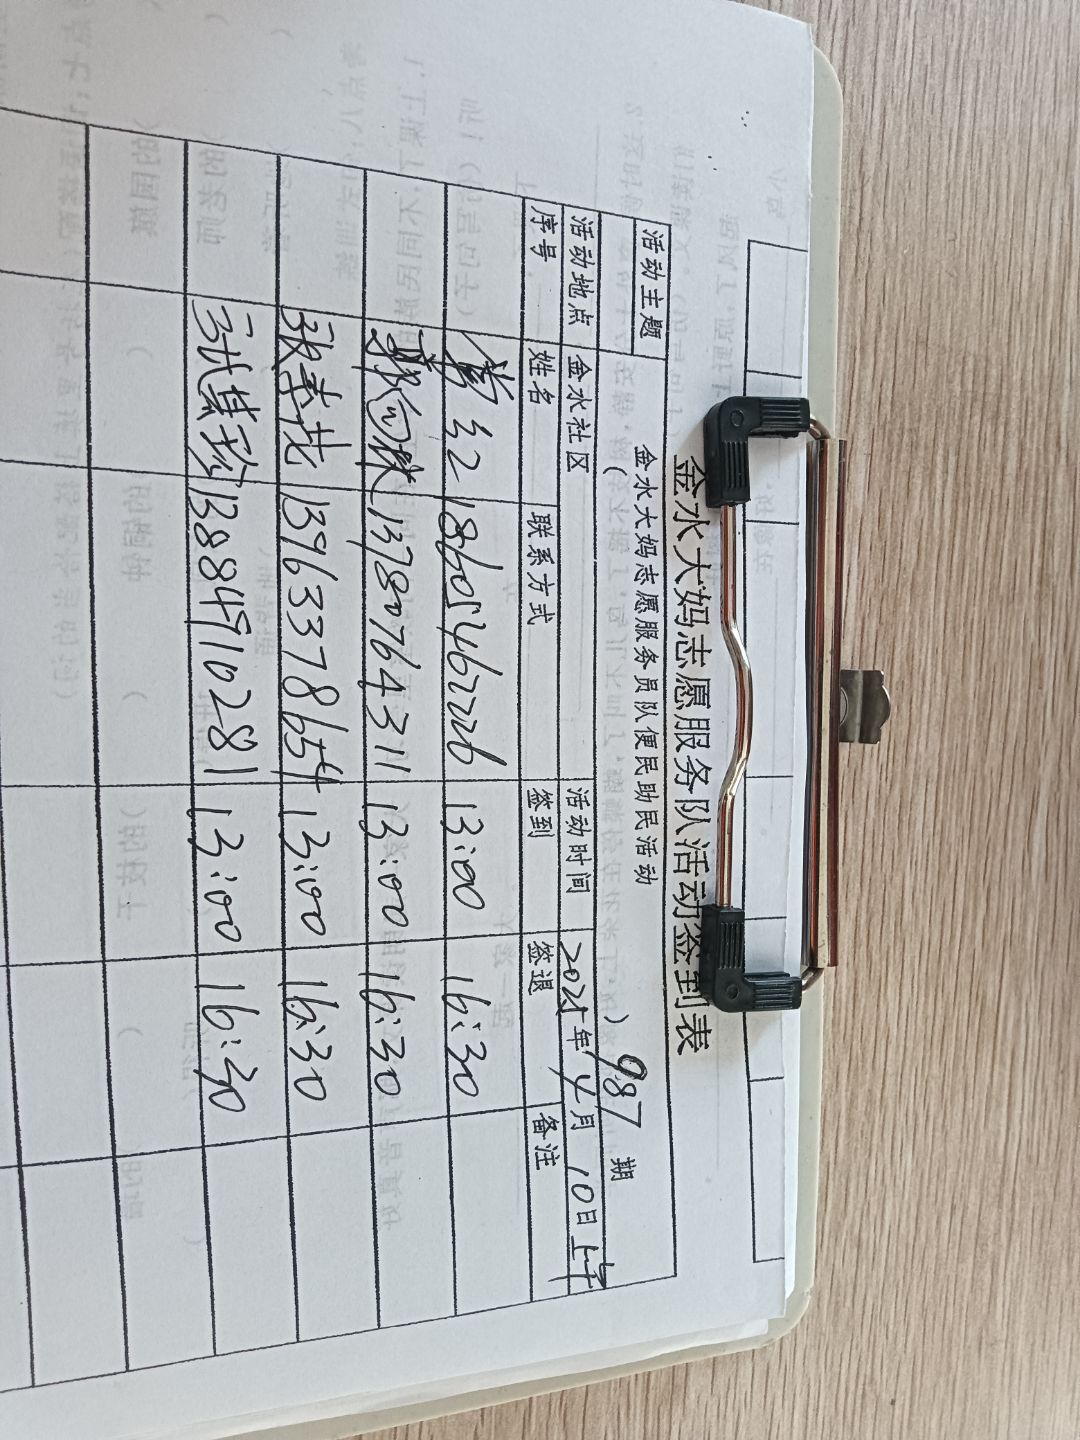 金水大妈志愿服务队活动签到表
活动主题 金水大妈志愿服务员队便民助民活动
( ) 987 期
活动地点 金水社区 活动时间 2025年4月10日上午
序号 姓名 联系方式 签到 签退 备注
18605462226 13:00 16:30
13780764311 13:00 16:30
张秀花 13963378654 13:00 16:30
13884910281 13:00 16:30